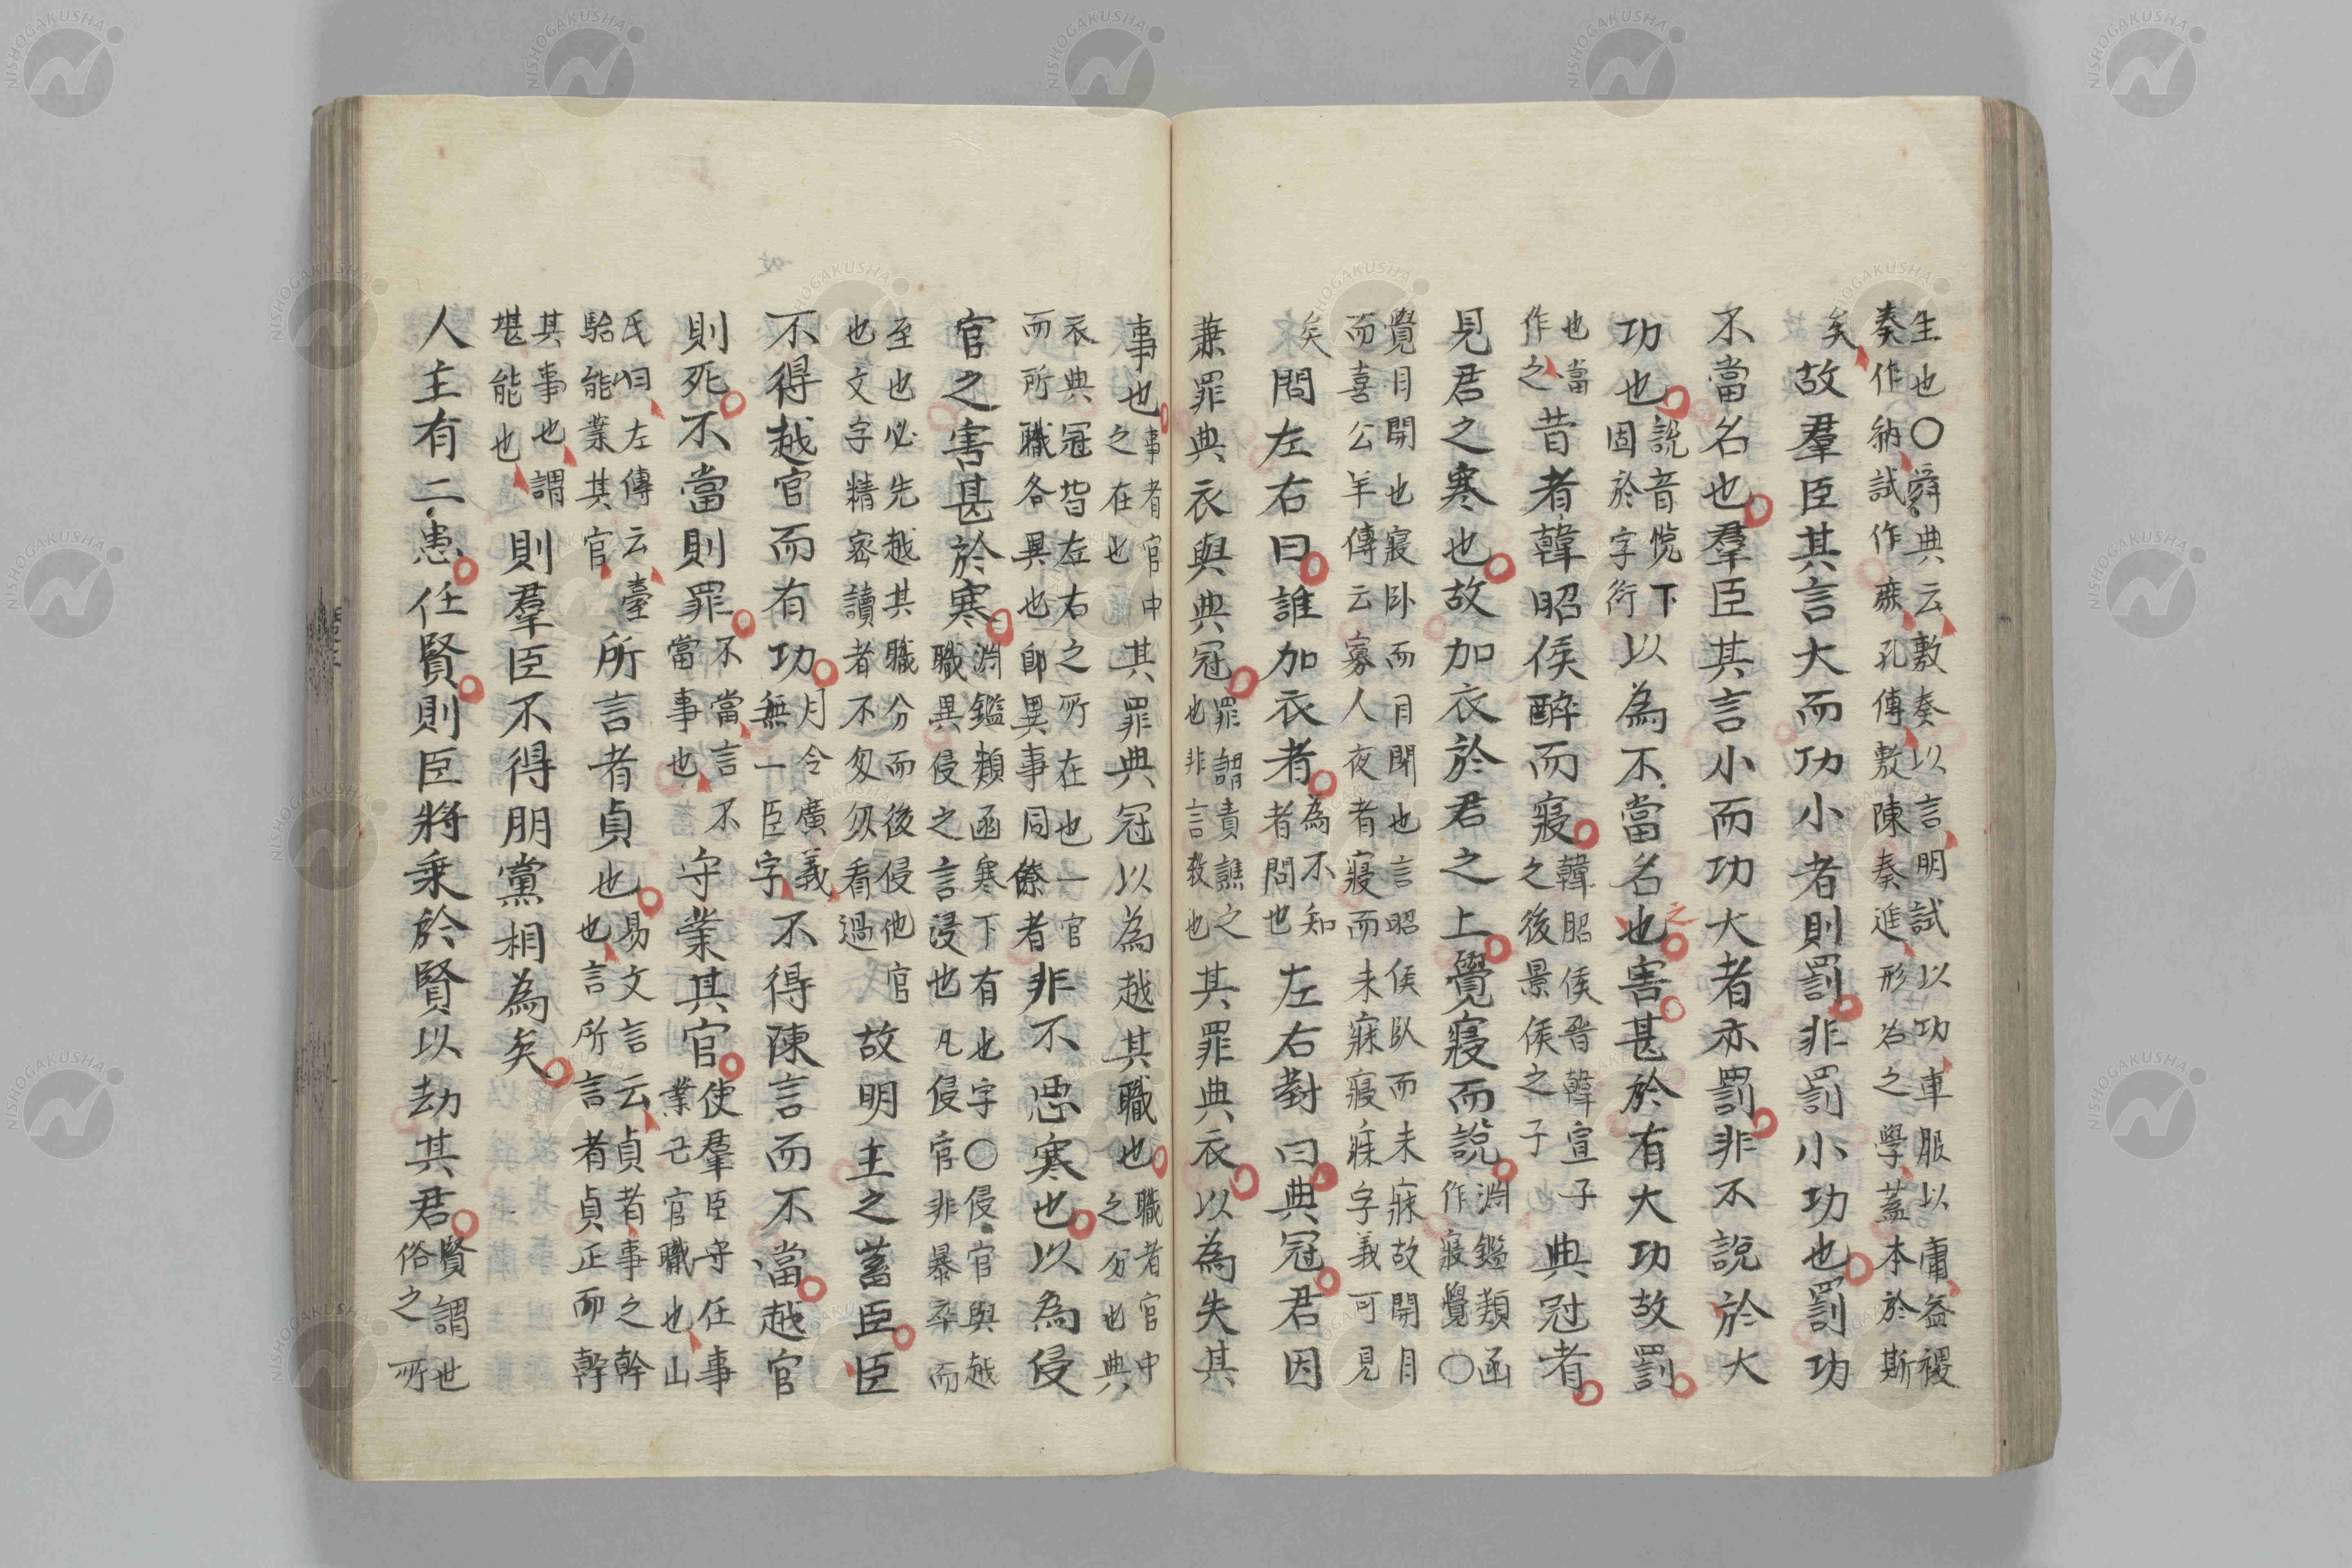 生也〇舜典云敷奏以言明試以功車服以庸益稷
奏作納試作庶孔傳敷陳奏進形名之學蓋本於斯
矣故羣臣其言大而功小者則罰非罰小功也罰功
不當名也羣臣其言小而功大者亦罰非不說於大
功也說音悅下固於字衍以為不當名也之害甚於有大功故罰
也當作之昔者韓昭侯醉而寢韓昭侯晉韓宣子之後景侯之子典冠者
見君之寒也故加衣於君之上覺寢而說淵鑑類函作寢覺〇
覺目開也寢卧而目閉也言昭侯臥而未寐故開目
而喜公羊傳云寡人夜者寢而未寐寢寐字義可見
矣問左右曰誰加衣者為不知者問也左右對曰典冠君因
兼罪典衣與典冠罪謂責譙之也非言殺也其罪典衣以為失其
事也事者官中之在也其罪典冠以為越其職也職者官中之分也典
衣典冠皆左右之所在也一官
而所職各異也即異事同僚者非不惡寒也以為侵
官之害甚於寒淵鑑類函寒下有也字〇侵官與越職異侵之言浸也凡侵官非暴卒而
至也必先越其職分而後侵他官
也文字精密讀者不匆匆看過故明主之蓄臣臣
不得越官而有功月令廣義無一臣字不得陳言而不當越官
則死不當則罪不當言不當事也守業其官使羣臣守任事業亡官職也山
氏曰左傳云臺駘能業其官所言者貞也易文言云貞者事之幹也言所言者貞正而幹
其事也謂堪能也則羣臣不得朋黨相為矣
人主有二患任賢則臣將乘於賢以劫其君賢謂世俗之所